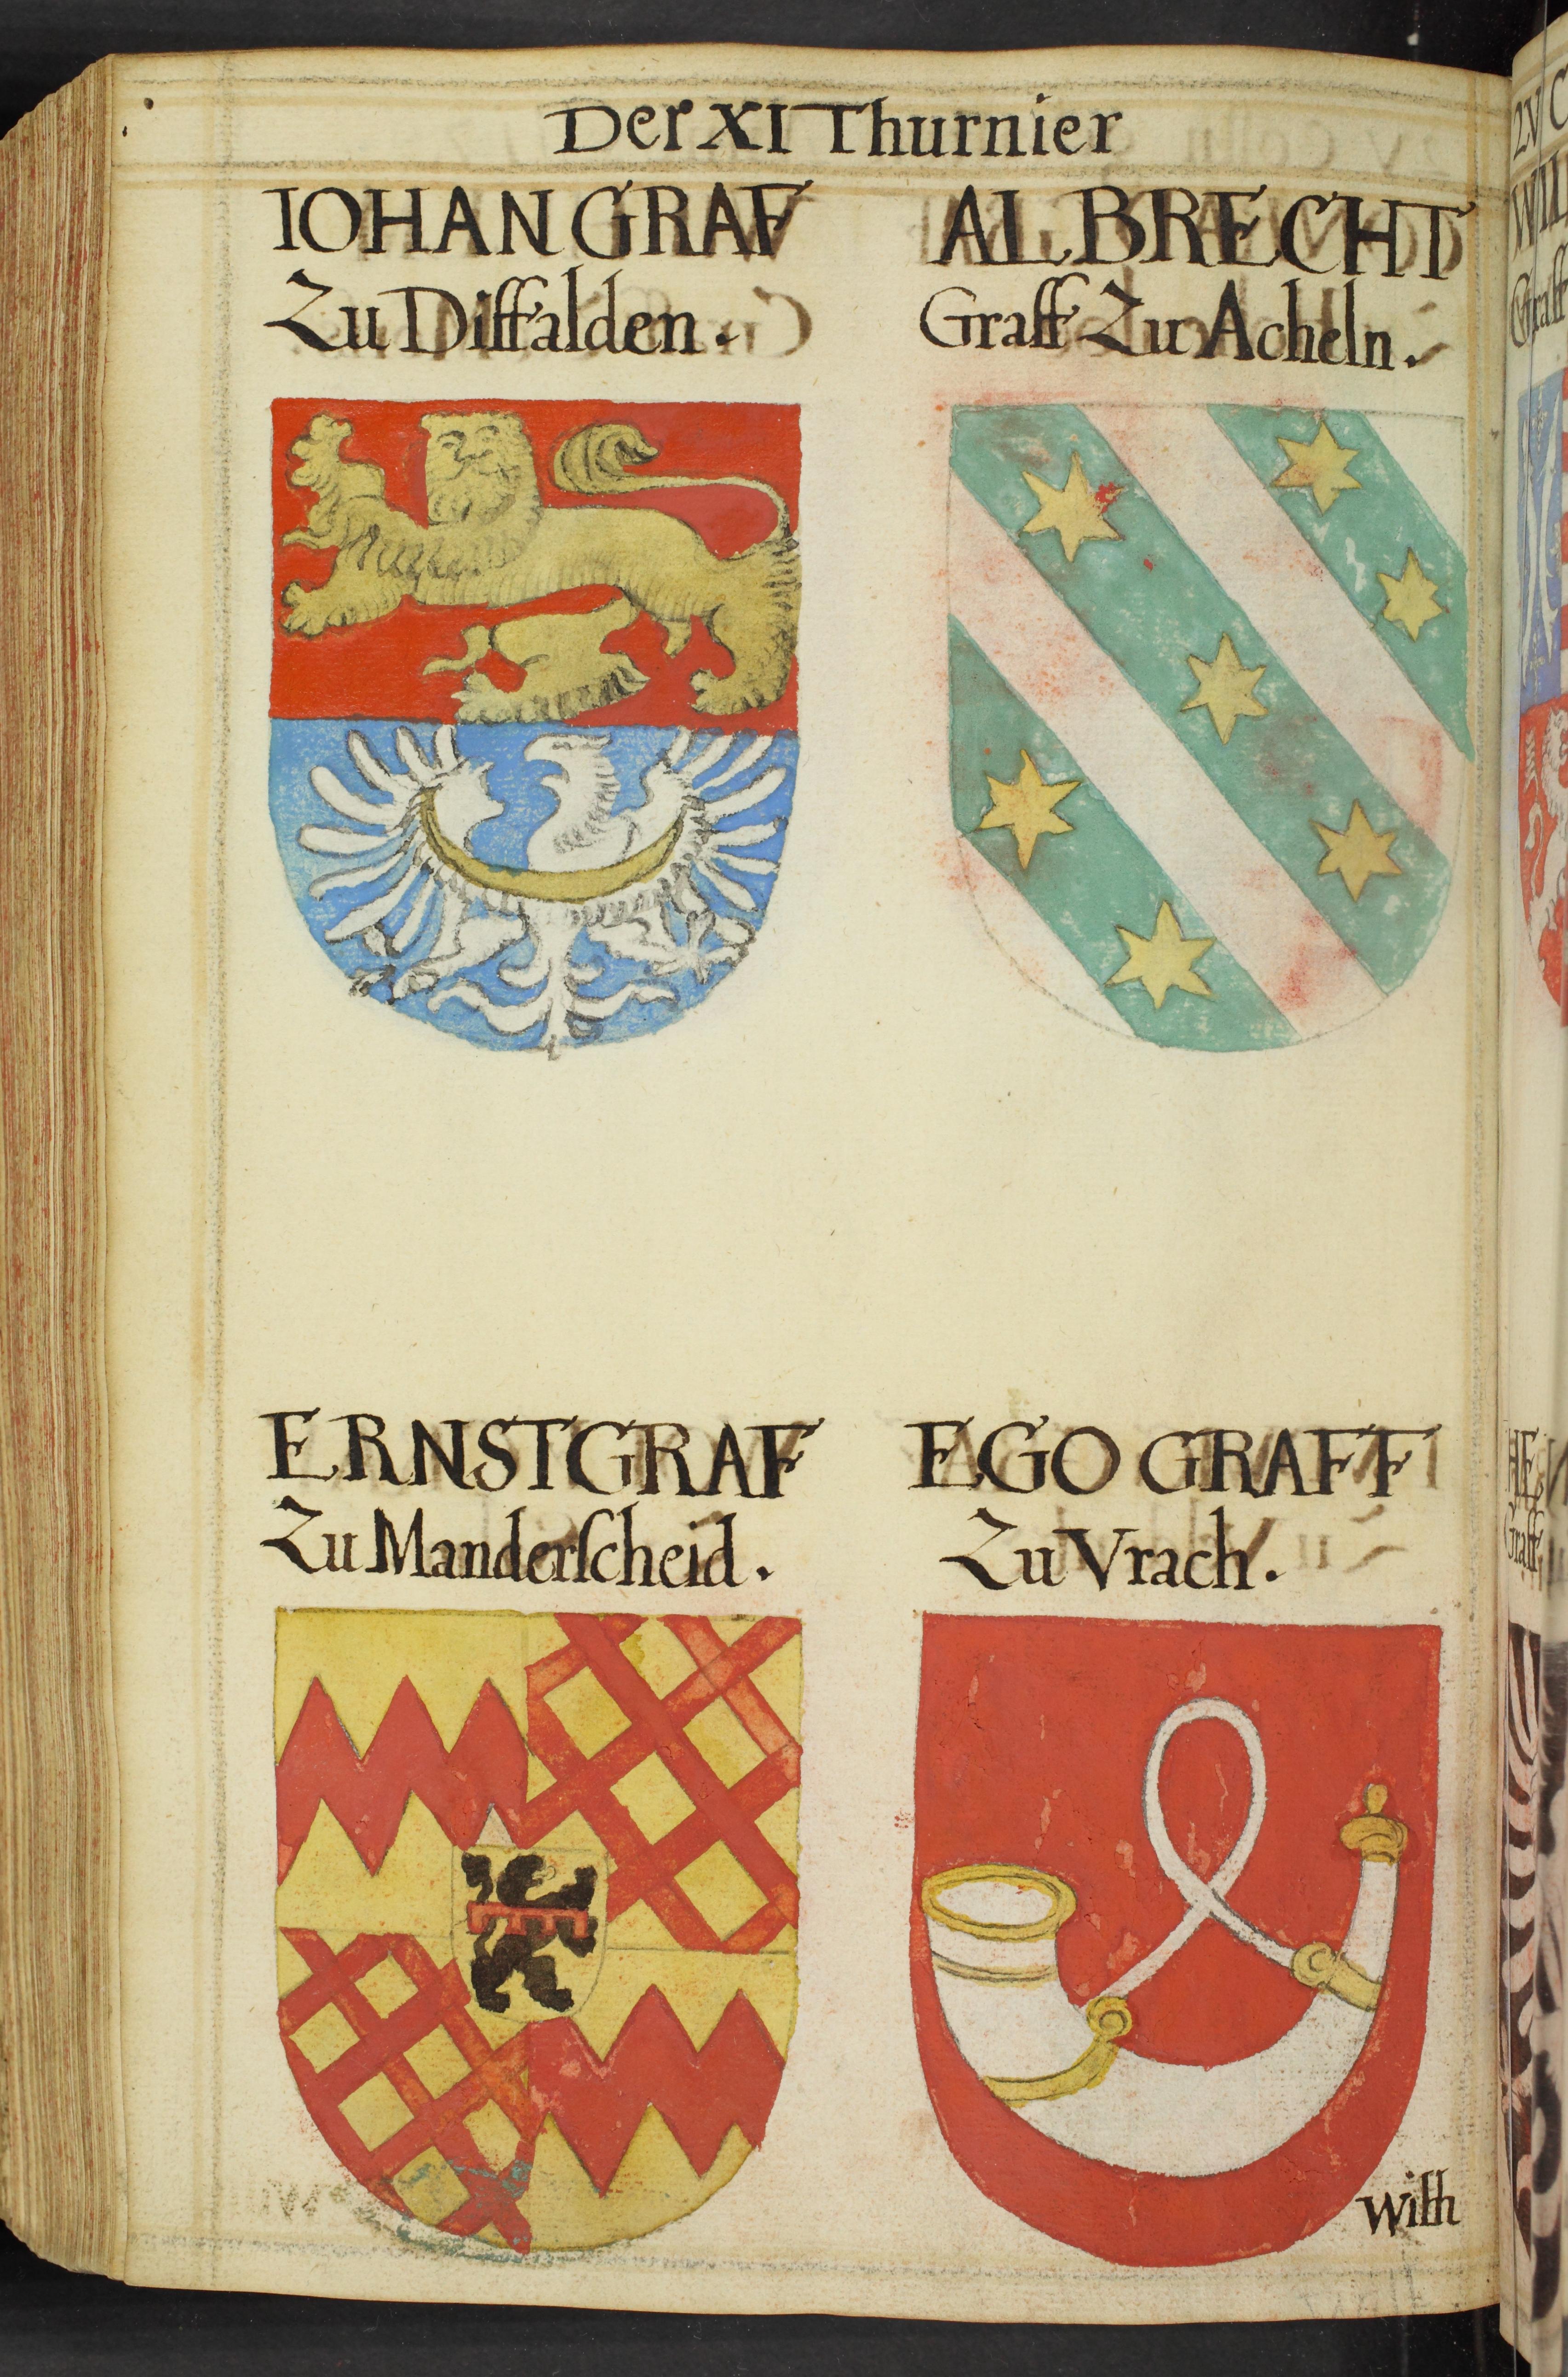 Der XI Thurnier
IOHAN GRAF
Zu Diffalden.
ALBRECHT
Graff Zu Acheln.
ERNST GRAF
Zu Manderſcheid.
EGO GRAFF
Zu Vrach.
Wilh
ZV
WIL
Graff
Graff